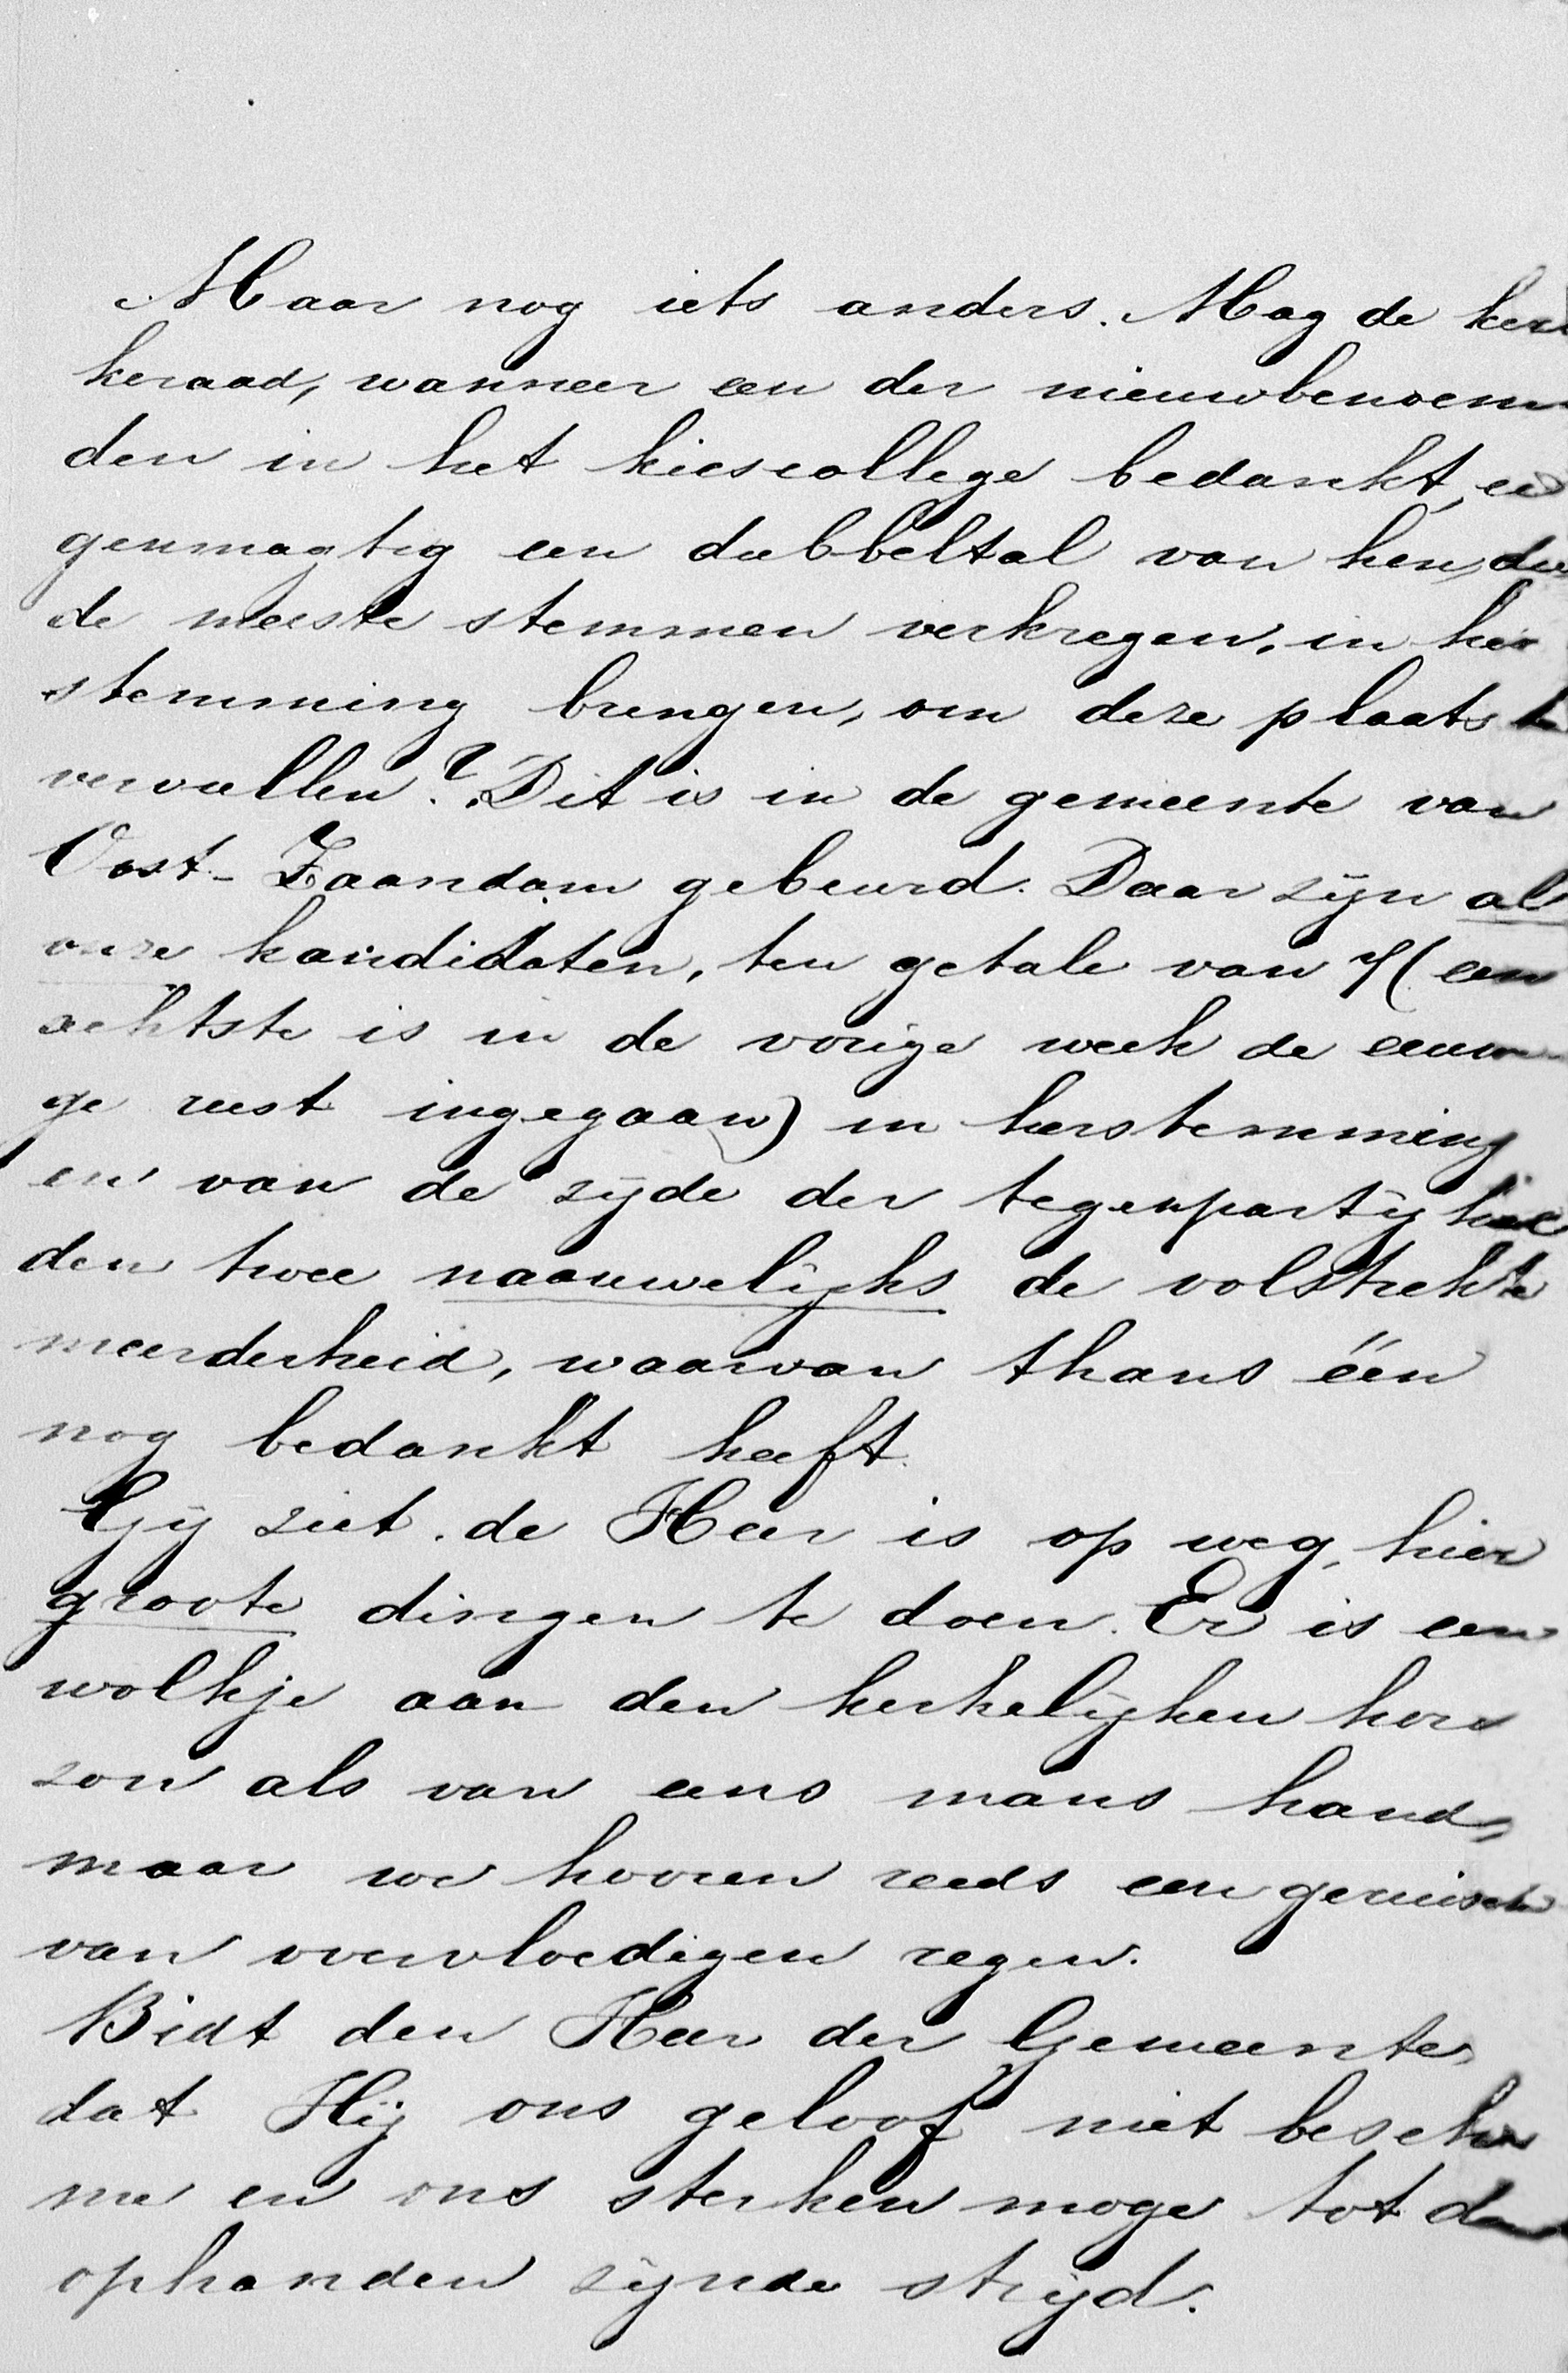 Maar nog iets anders. Mag de ker
keraad, wanneer een der nieuwbenoem
den in het kiescollege bedankt, ei
genmagtig een dubbeltal van hen, die
de meeste stemmen verkregen, in her
stemming brengen, om deze plaats te
vervullen? Dit is in de gemeente van
Oost-Zaandam gebeurd. Daar zijn al
onze kandidaten, ten getale van 7 (een
achtste is in de vorige week de eeuwi
ge rust ingegaan) in herstemming
en van de zijde der tegenpartij had
den twee naauwelijks de volstrekte
meerderheid, waarvan thans één
nog bedankt heeft.
Gij ziet, de Heer is op weg, hier
groote dingen te doen. Er is een
wolkje aan den kerkelijken hori
zon als van eens mans hand,
maar we hooren reeds een geruisch
van overvloedigen regen.
Bidt den Heer der Gemeente,
dat Hij ons geloof niet bescha
me en ons sterken moge tot den
ophanden zijnde strijd.